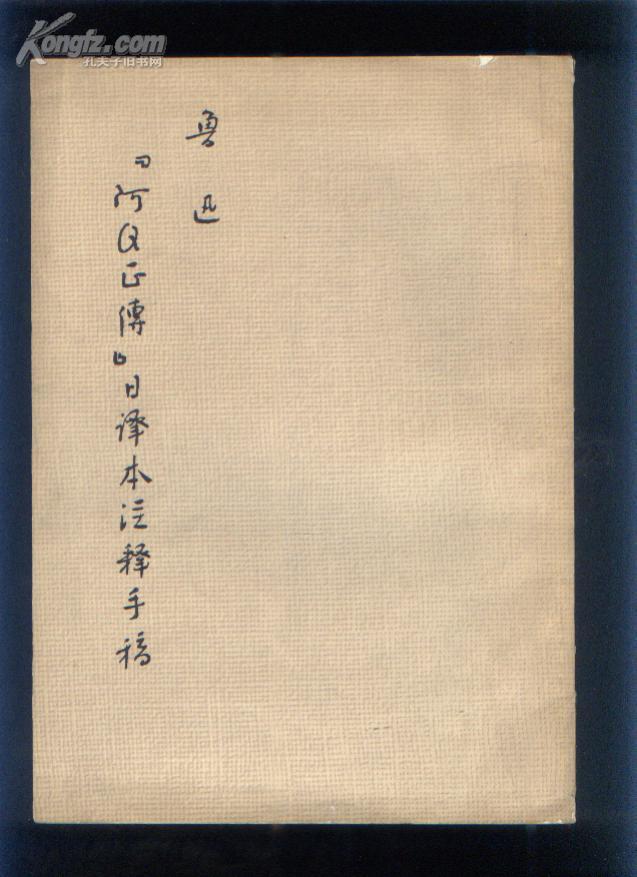 Kongfz.com
孔夫子旧书网
鲁迅
『阿Q正傳』日译本注释手稿